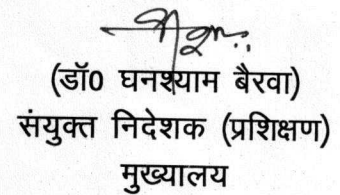 (डॉ0 घनश्याम बैरवा)
संयुक्त निदेशक (प्रशिक्षण)
मुख्यालय